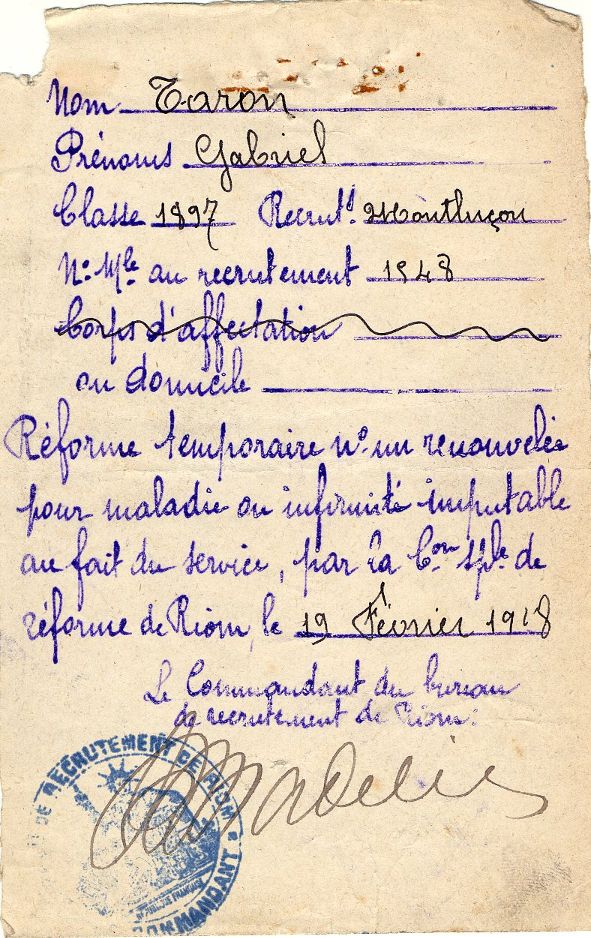 Nom Taron
Prénoms Gabriel
Classe 1897 Recrut^t. Montluçon
N° M^le au recrutement 1548
Corps d'affectation
ou domicile
Réforme temporaire n° un renouvelée
pour maladie ou infirmité imputable
au fait du service, par la C^on Sp^le de
réforme de Riom, le 19 Février 1918
Le Commandant du bureau
de recrutement de Riom:
DE RECRUTEMENT DE RIOM
COMMANDANT